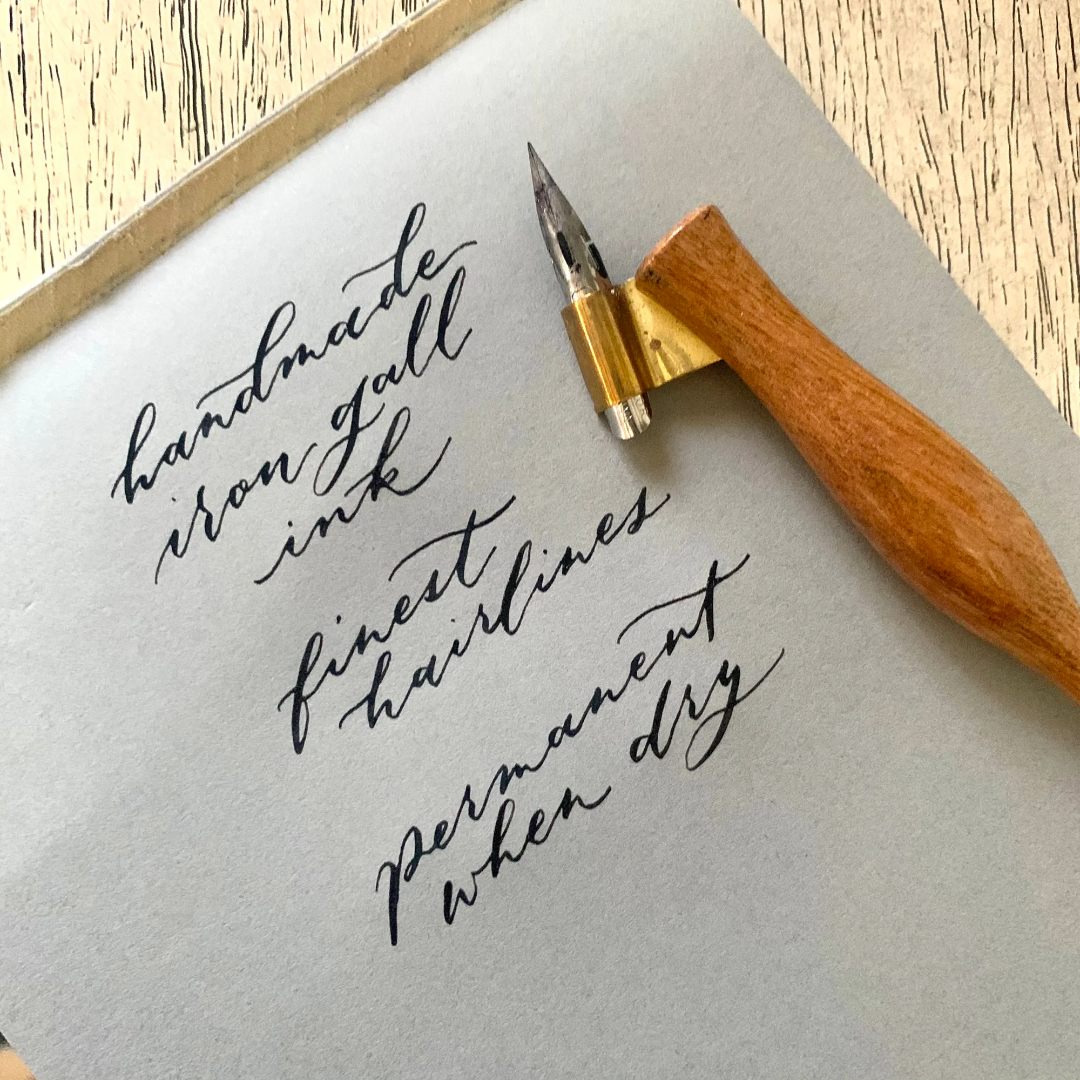 handmade
iron gall
ink
finest
hairlines
permanent
when dry